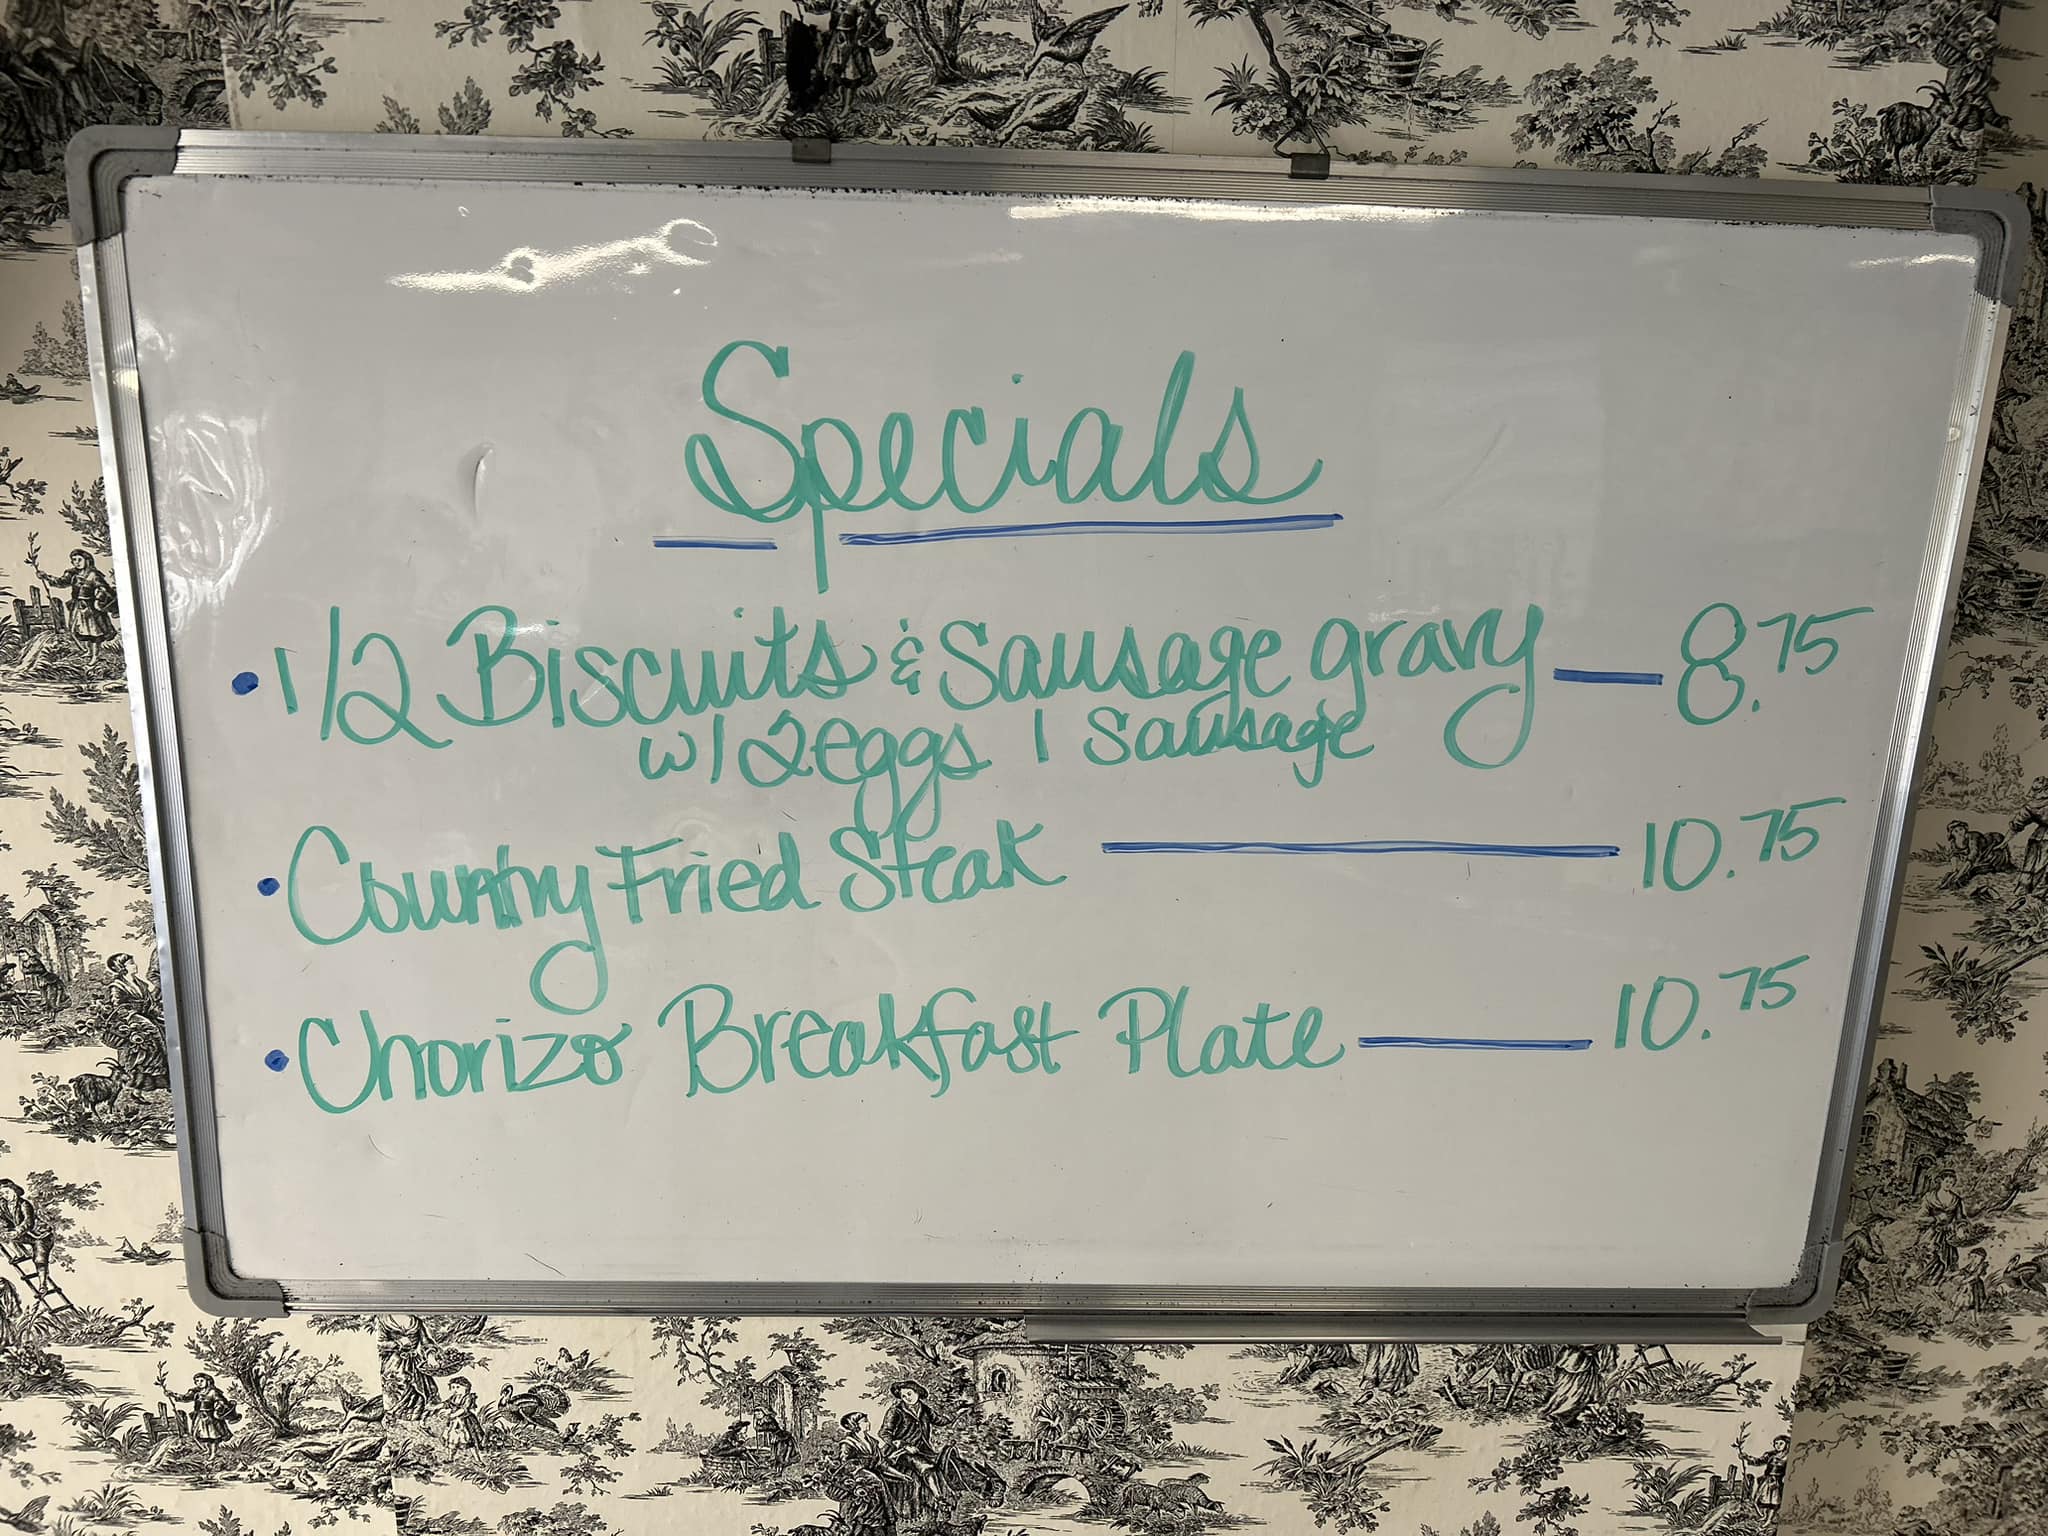 Specials
• 1/2 Biscuits & Sausage gravy — 8.75
w/ 2 eggs 1 Sausage
• Country Fried Steak — 10.75
• Chorizo Breakfast Plate — 10.75